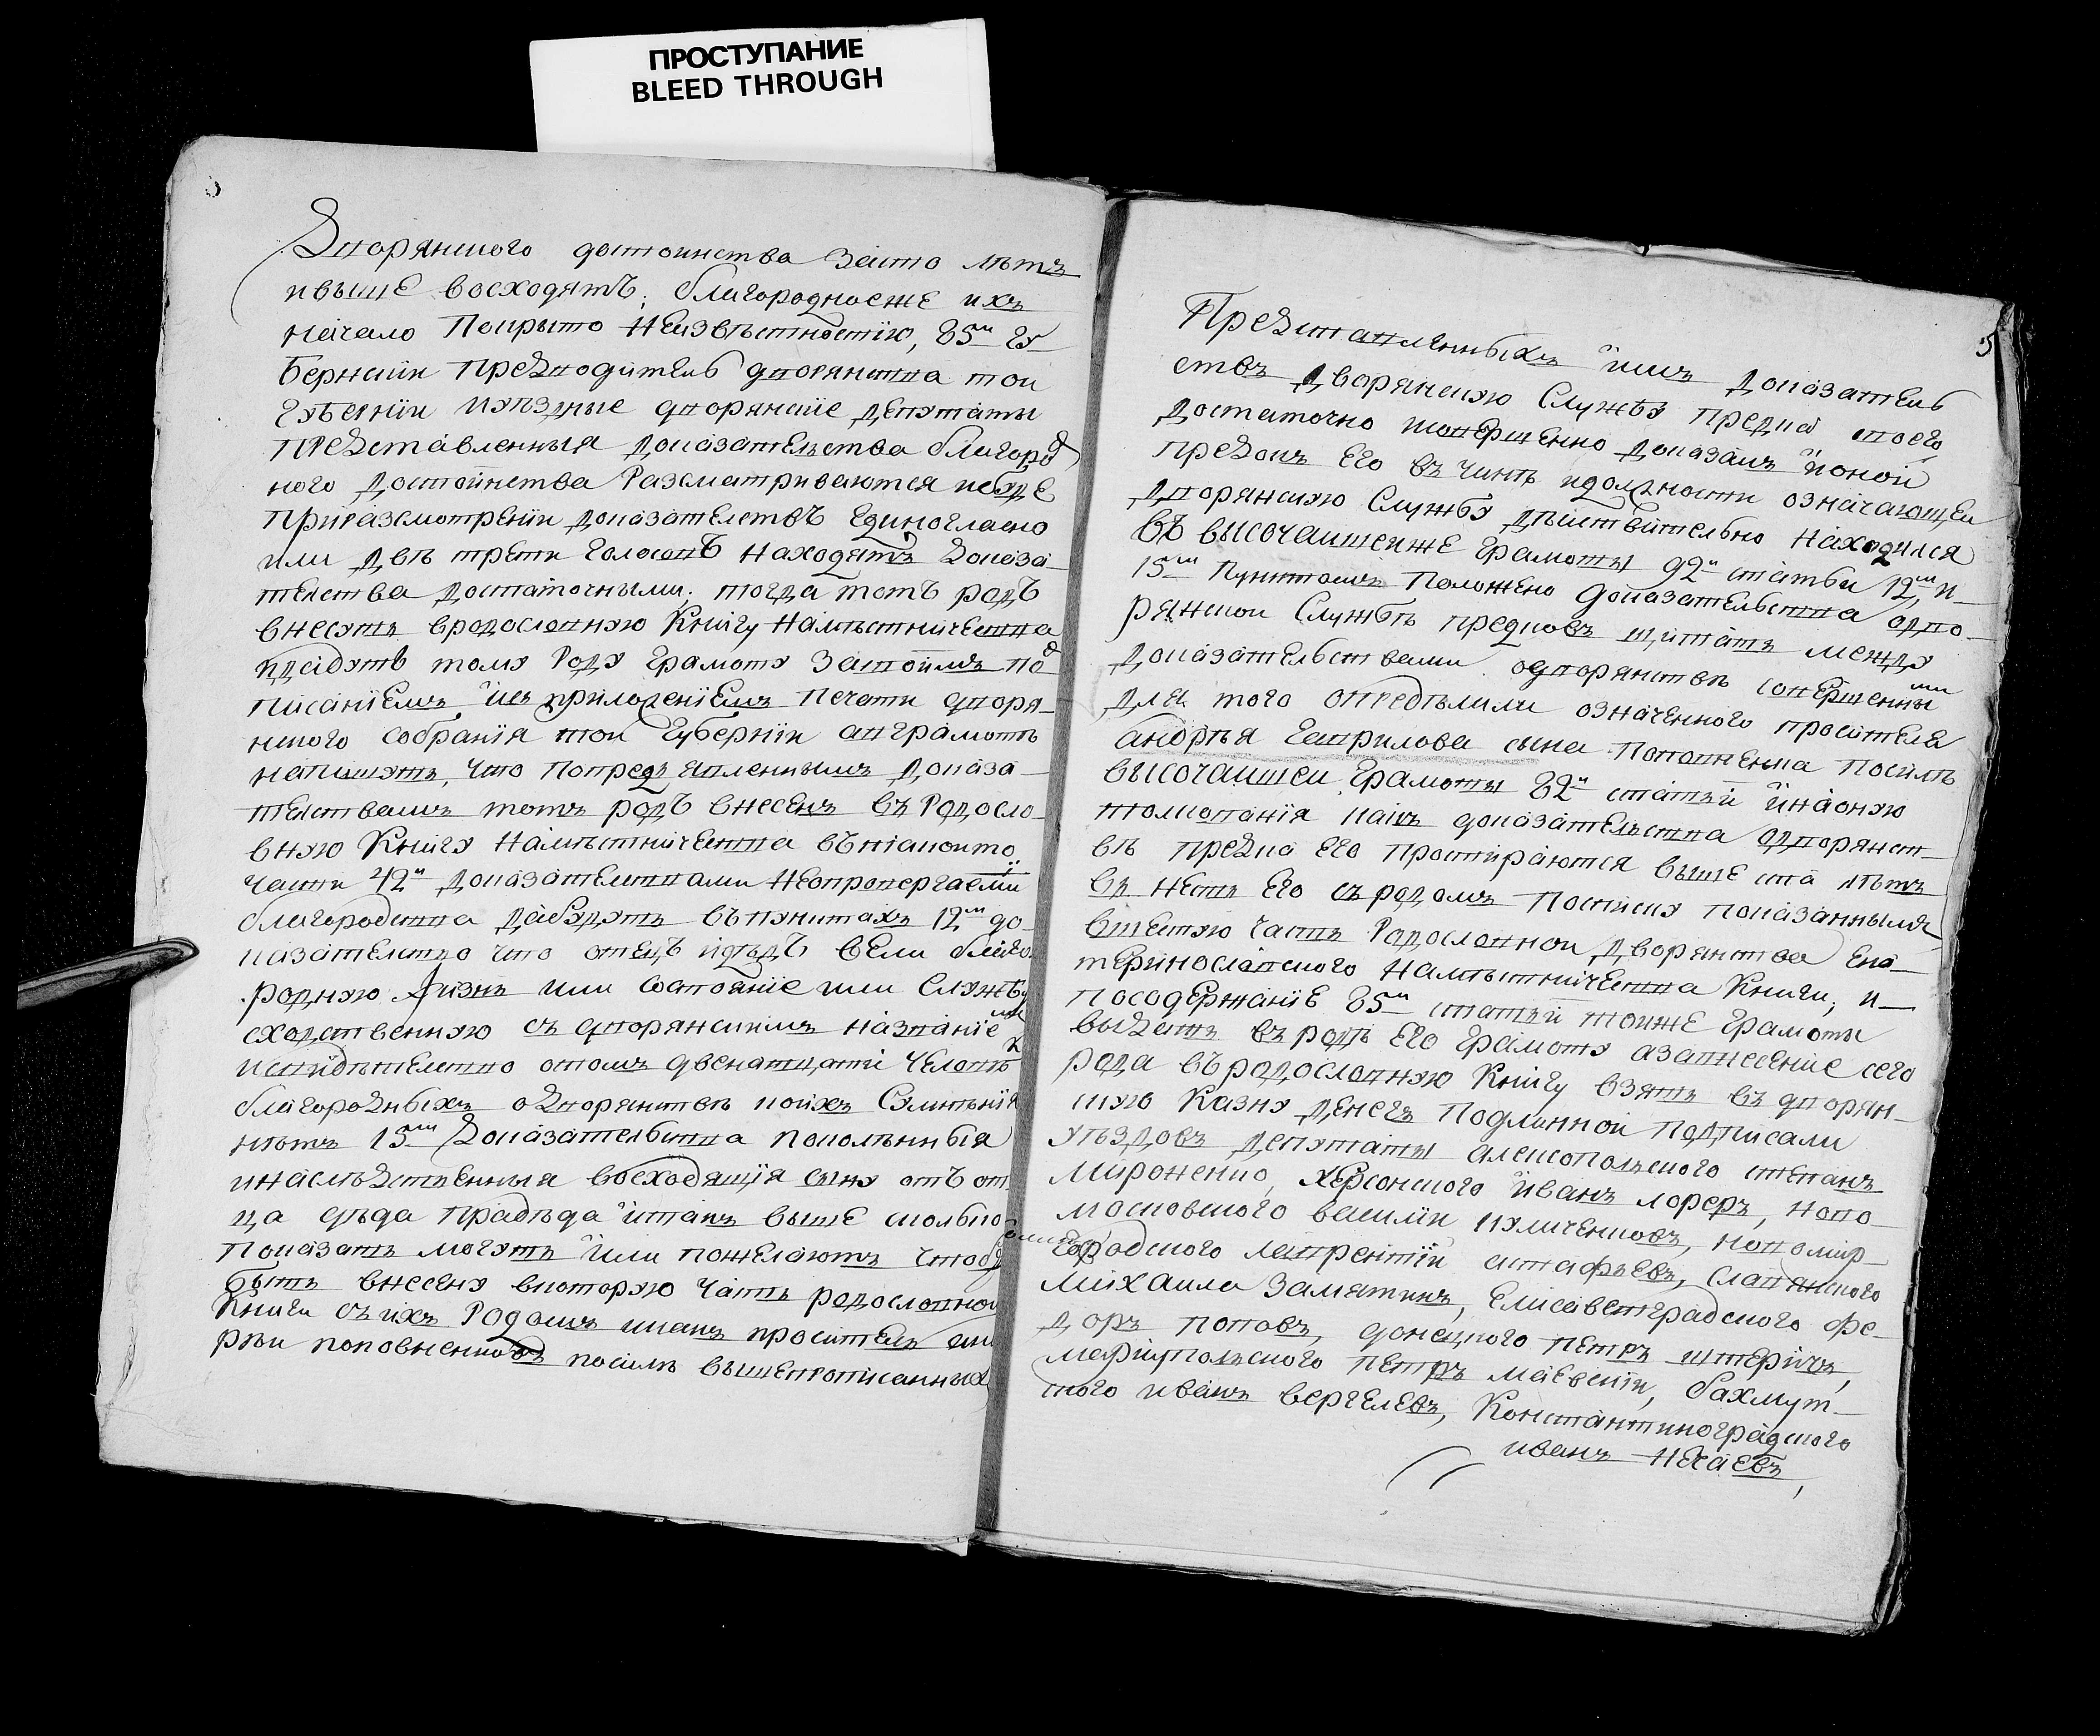 ПРОСТУПАНИЕ
BLEED THROUGH
Дворянского достоинства засто лѣтъ
ивыше восходятъ; благородноеже ихъ
начало покрыто неизвѣстностїю, 85ю гу-
бернскїи предводитель дворянства тои
губернїи иуѣздные дворянскїе депутаты
представленныя доказательства благород
ного достоинства разсматриваются ибуде
приразсмотренїи доказателствъ единогласно
или двѣ трети голосовъ находятъ доказа-
телства достаточными; тогда тотъ родъ
внесутъ вродословную книгу намѣстничества
идадутъ тому роду грамоту засвоимъ под
писанїемъ исъ приложенїемъ печати дворя-
нского собранїя тои губернїи авграмотѣ
напишутъ, что попредъявленнымъ доказа-
телствамъ тотъ родъ внесенъ въ родосло-
вную книгу намѣстничества въ
части 92и доказателствами неопровергаемыми
благородства дабудутъ въпунктахъ 12м до-
казателство что отецъ идѣдъ вели благо
родную жизнь или состоянїе или службу
сходственную съ дворянскимъ названїемъ
исвидѣтелство отомъ двенатцати человѣкъ
благородныхъ одворянствѣ коихъ сумнѣнїя
нѣтъ 15м доказательства поколѣнныя
инаслѣдственныя восходящїя сыну отъ от
ца дѣда прадѣда итакъ выше сколько
показать могутъ или пожелаютъ чтобъ
быть внесену вкоторую часть родословнои
книги съ ихъ родомъ икакъ проситель анд
рѣи поповненковъ посилѣ вышепрописанныхъ
5
Представленныхъ имъ доказатель
ствъ дворянскую службу предка своего
достаточно исовершенно доказалъ ионой
предокъ его въ чинѣ идолжности означающеи
дворянскую службу дѣйствительно находился
въ высочаишеиже грамоты 92и статьи 12м, и-
15м пунктомъ положено доказательства одво-
рянскои службѣ предковъ щитать между
доказательствами одворянствѣ совершенными
для того опредѣлили означенного просителя
андрѣя гаврилова сына посилѣ
высочаишеи грамоты 82и статьи инаоную
толкованїя какъ доказательства одворянст-
вѣ предка его простираются выше ста лѣтъ
внесть его съ родомъ посписку показаннымъ
вшестую часть родословнои дворянства ека-
теринославского намѣстничества книги; и-
посодержанїю 85и статьи тоиже грамоты
выдать въ родъ его грамоту азавнесенїе сего
рода въродословную книгу взять въ дворян-
скую казну денегъ подлиннои подписали
уѣздовъ депутаты алексопольского степанъ
мироненко, херсонского иванъ лореръ, ново-
московского василїи куличенковъ, новомир-
городского лаврентїй астафьевъ, славянского
михаила замятинъ, елисаветградского фе-
доръ поповъ, донецкого петръ штеричъ,
марїупольского петръ маевскїи, бахмут-
ского иванъ вергелевъ, константиноградского
иванъ нечаевъ,